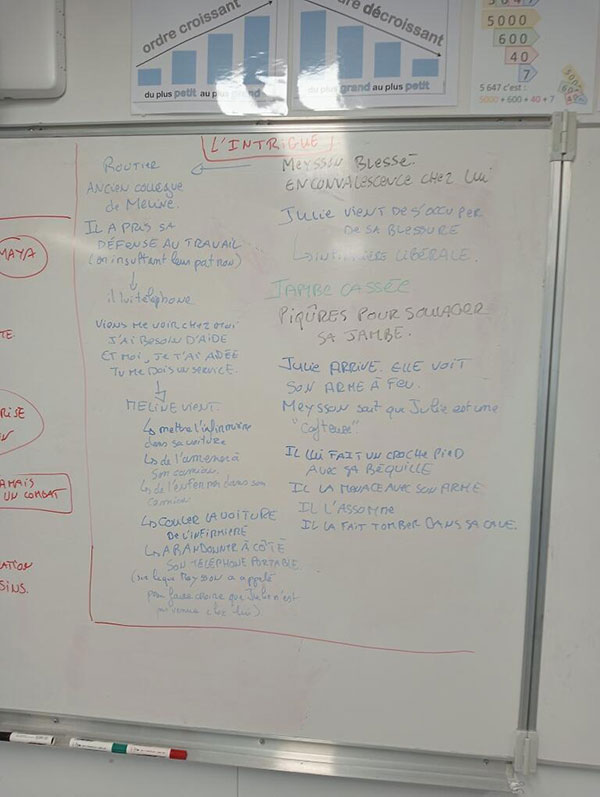 ordre croissant
du plus petit au plus grand
ordre décroissant
du plus grand au plus petit
5647
5000
600
40
7
5 647 c'est :
5000 + 600 + 40 + 7
L'INTRIGUE !
MAYA
TE.
RISE
AMAIS
UN COMBAT
ATION
SINS.
ROUTIER
ANCIEN COLLEGUE
de MELINE.
IL A PRIS SA
DÉFENSE AU TRAVAIL
(en insultant leur patron)
il lui téléphone
VIENS ME VOIR CHEZ MOI
J'AI BESOIN D'AIDE
ET MOI, JE T'AI AIDÉE
TU ME DOIS UN SERVICE.
MELINE VIENT.
↳ mettre l'infirmière
dans sa voiture
↳ de l'amener à
son camion.
↳ de l'enfermer dans son
camion
↳ COULER LA VOITURE
DE L'INFIRMIERE
↳ ABANDONNER À CÔTÉ
SON TÉLÉPHONE PORTABLE.
(sur lequel Meysson a appelé
pour faire croire que Julie n'est
pas venue chez lui).
MEYSSON BLESSÉ
EN CONVALESCENCE CHEZ LUI
JULIE VIENT DE S'OCCUPER
DE SA BLESSURE
↳ INFIRMIÈRE LIBÉRALE.
JAMBE CASSÉE
PIQÛRES POUR SOULAGER
SA JAMBE.
JULIE ARRIVE. ELLE VOIT
SON ARME À FEU.
MEYSSON sait que Julie est une
"cafteuse".
IL LUI FAIT UN CROCHE PIED
AVEC SA BÉQUILLE
IL LA MENACE AVEC SON ARME
IL L'ASSOMME
IL LA FAIT TOMBER DANS SA CAVE.